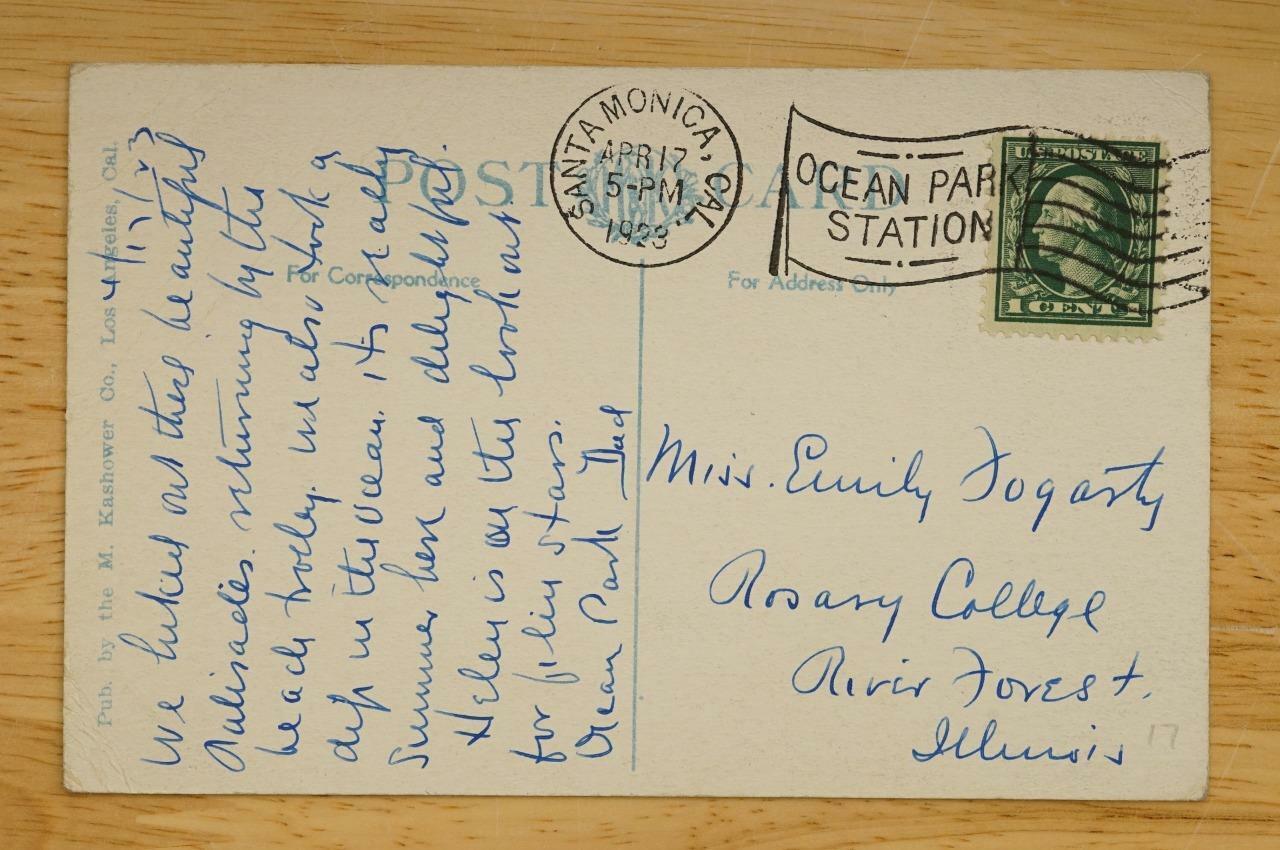 POST CARD
For Correspondence
For Address Only
SANTA MONICA, CAL.
APR 17
5-PM
1923
OCEAN PARK
STATION
U.S. POSTAGE
1 CENT 1
Pub. by the M. Kashower Co., Los Angeles, Cal.
4/17/23
We hiked out these beautiful
Palisades. returning by the
beach trolley. we also took a
dip in the ocean. its really
summer here and delightful.
Helen is on the look out
for film stars.
Ocean Park Dad
Miss. Emily Fogarty
Rosary College
River Forest.
Illinois
17